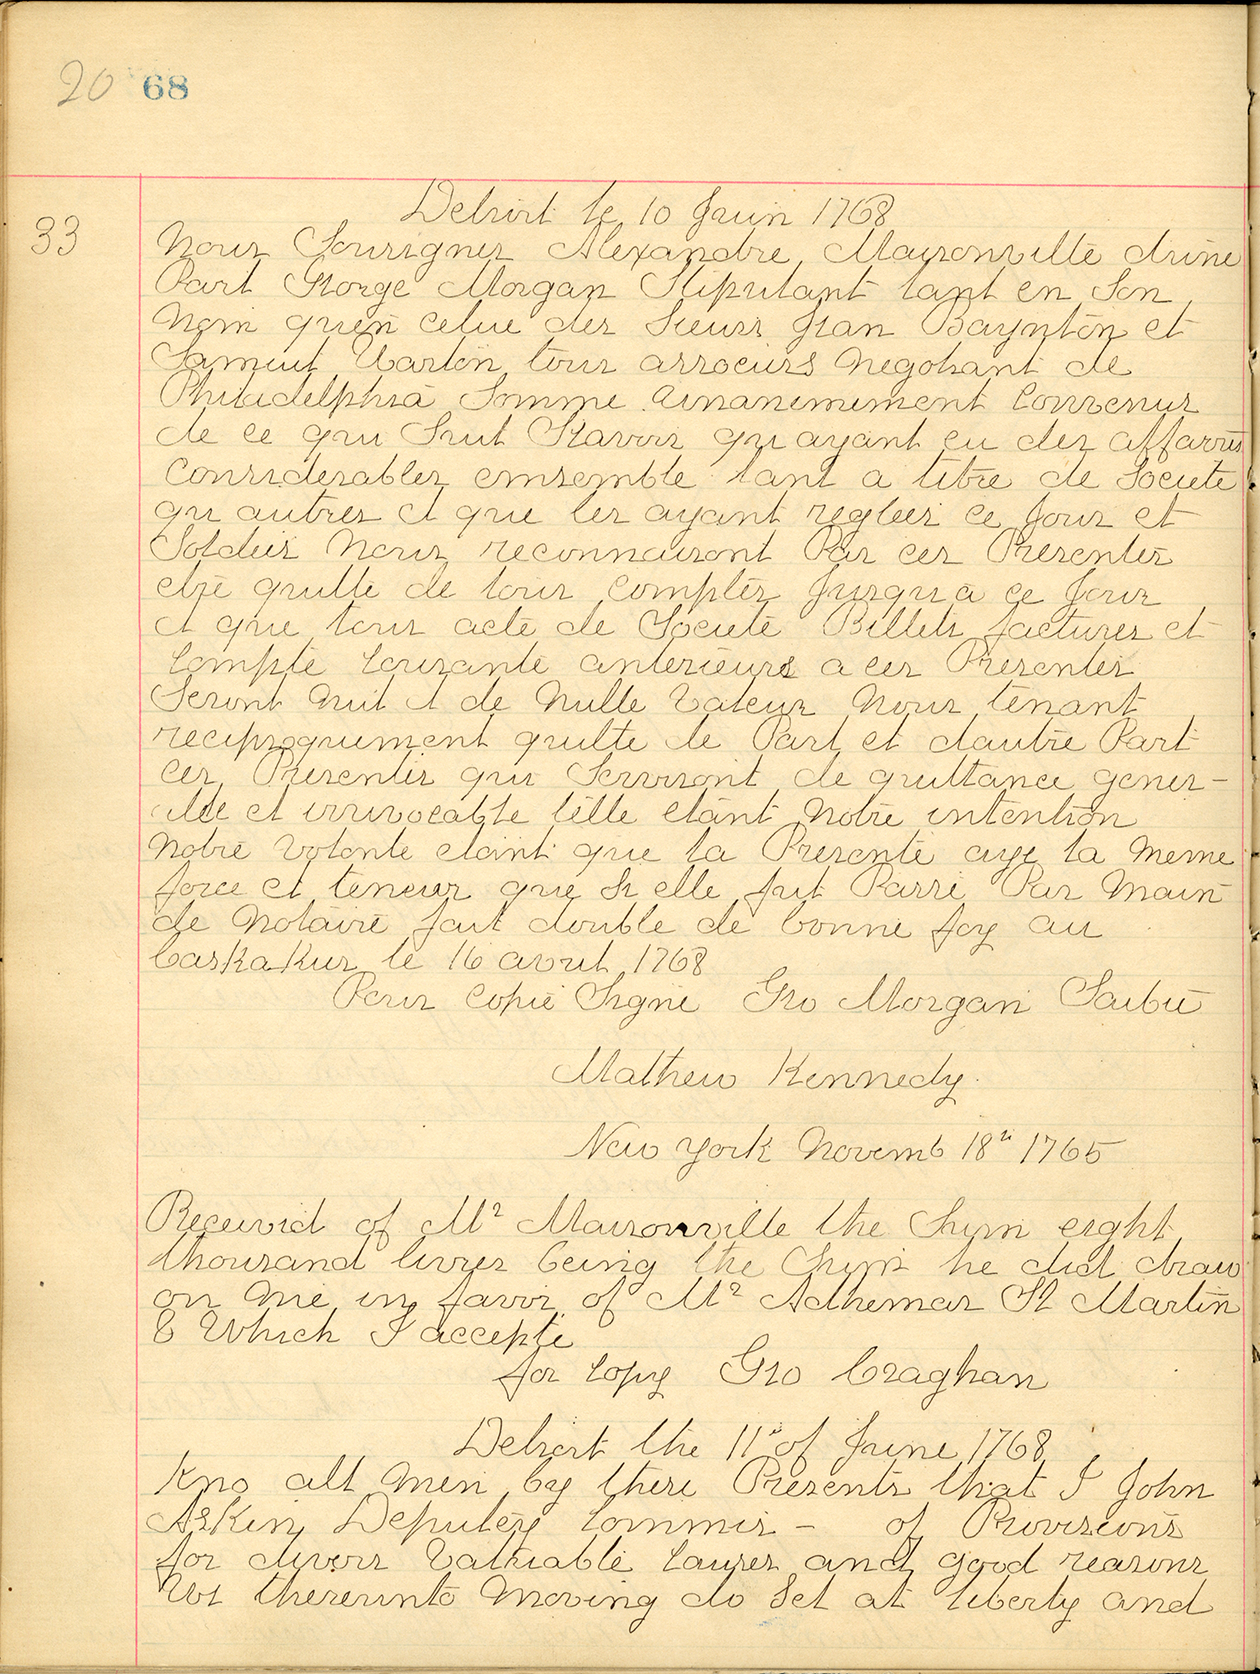 20 68
33
Detroit le 10 Juin 1768
Nous Soussignes Alexandre Maisonville d'une
Part George Morgan Stipulant tant en Son
Nom quen celui des Sieurs Jean Baynton et
Samuel Warton tous associés Negotiant de
Philadelphia Somme Unanimement Convenus
de ce qui Suit Scavoir qu ayant eu des affaires
Considerables emsemble tant a titre de Societe
qu autres et que les ayant reglees ce Jour et
Soldées Nous reconnaisont Par ces Presentes
etre quitte de tous Comptes Jusqu a ce Jour
et que tous acte de Societe Billets factures et
Compte Courante anterieurs a ces Presentes
Seront Nul et de Nulle Valeur Nous tenant
reciproquement quitte de Part et dautre Part
ces Presentes qui Serviront de quittance gener-
alle et irrivocable telle etant Notre intention
Notre Volonte etant que la Presente aye la meme
force et teneur que si elle fut Passé Par Main
de Notaire fait double de bonne foy au
Caskakus le 16 avril 1768
Pour Copie Signé Geo Morgan
Mathew Kennedy.
New York Novemb 18th 1765
Received of Mr Maisonville the Sum eight
thousand livres being the Sum he did draw
on me in favor of Mr Adhemar St Martin
& Which I accepte
for Copy Geo Craghan
Detroit the 11th of June 1768
Kno all Men by these Presents that I John
Askin Deputey Commis - of Provisions
for divers Valuable Causes and good reasons
thereunto Moving do Set at liberty and